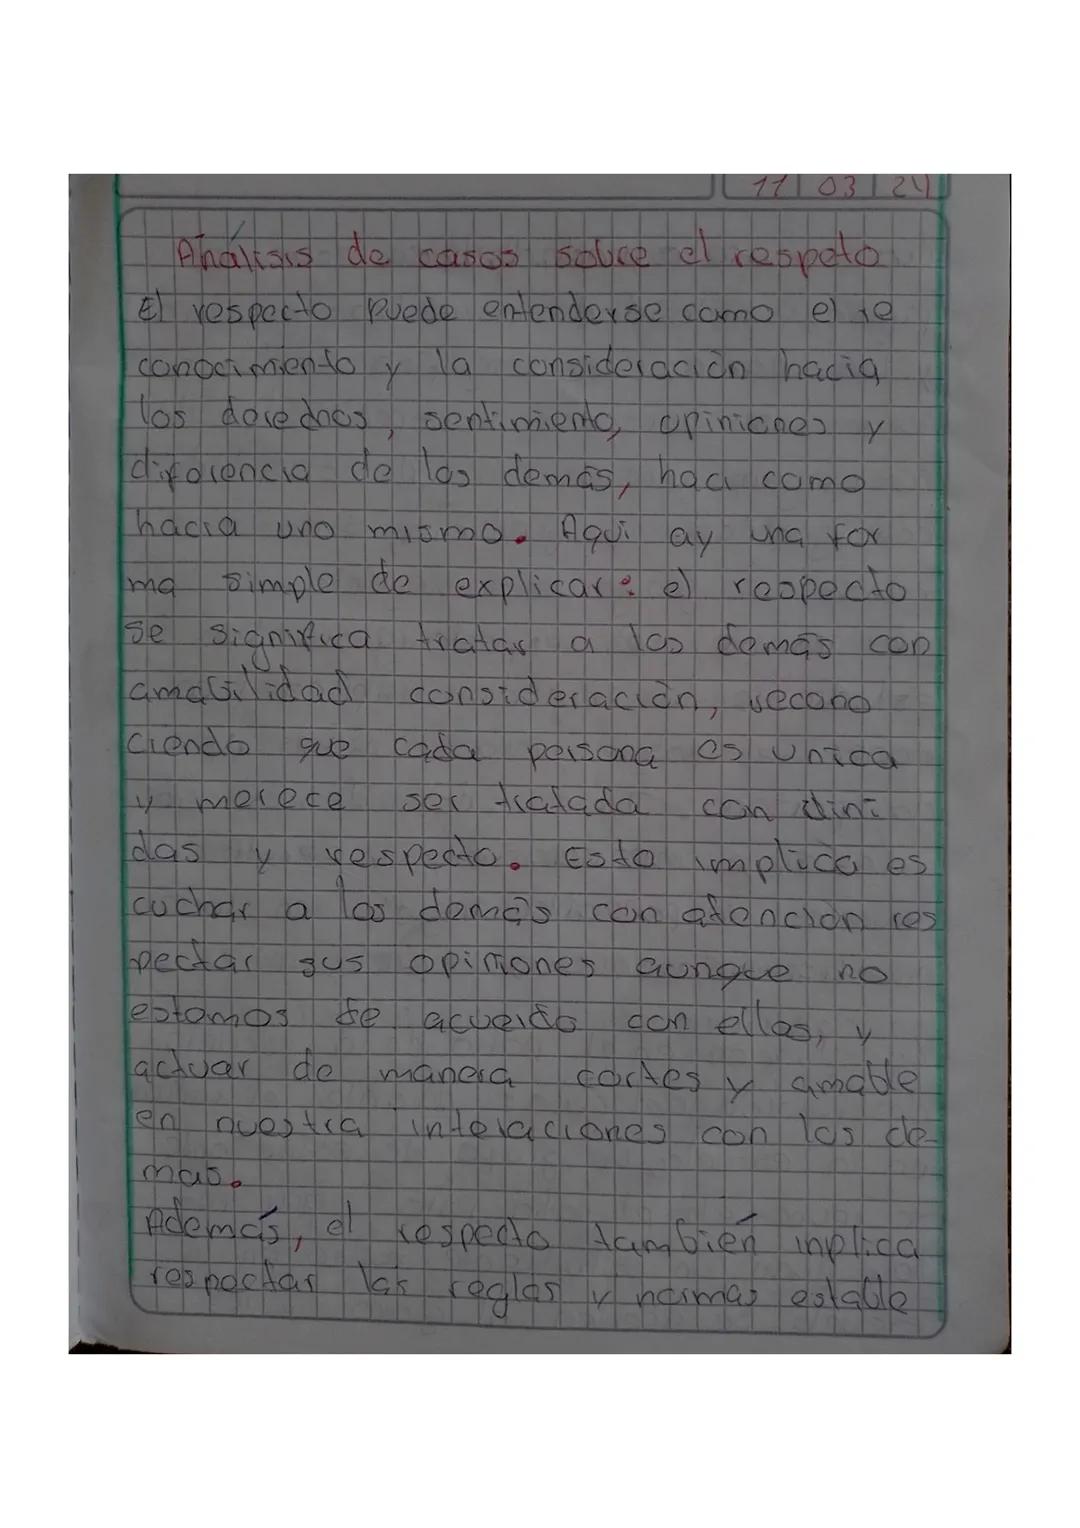 11 03 24
Análisis de casos sobre el respeto
El respecto puede entenderse como el re
conocimiento y la consideración hacia
los derechos, sentimiento, opiniones y
diferencia de los demás, haci como
hacia uno mismo. Aqui ay una for
ma simple de explicar: el respecto
se significa tratar a los demás con
amabilidad consideración, recono
ciendo que cada persona es unica
y merece ser tratada con dini
das y respecto. Esto implica es
cuchar a los demás con atención res
pectar sus opiniones aunque no
estamos de acuerdo con ellos, y
actuar de manera cortes y amable
en nuestra interaciones con los de-
mas.
Además, el respecto también inplica
respectar las reglas y normas estable